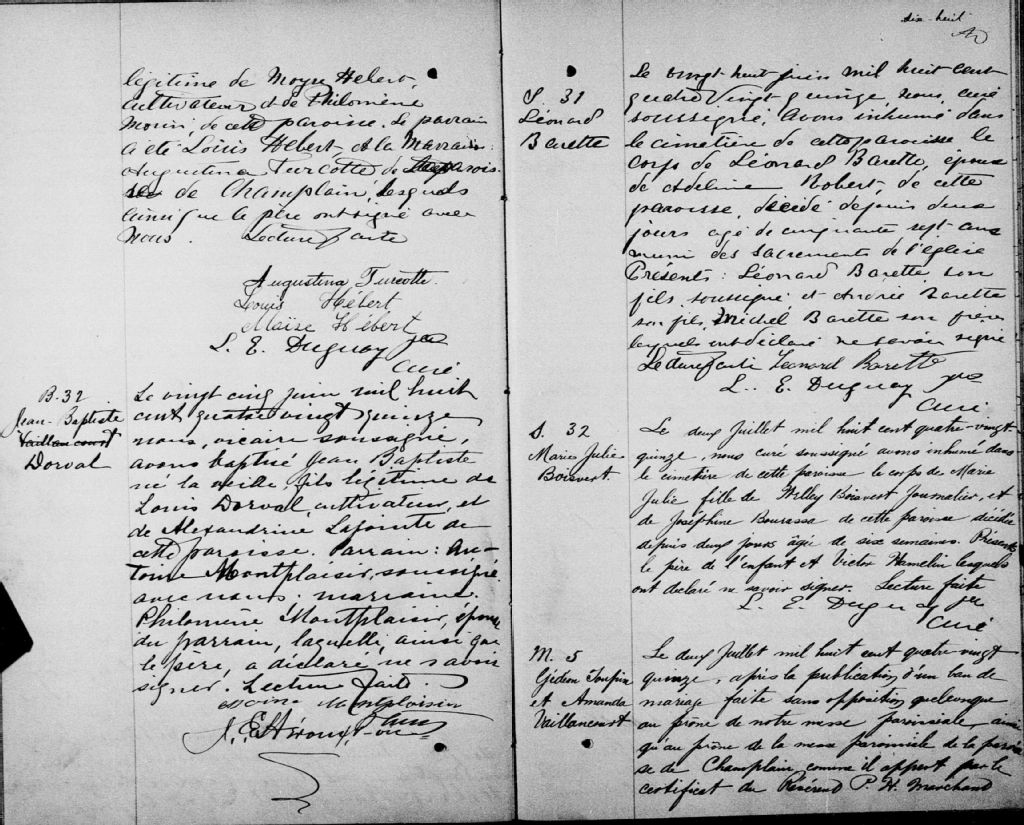 légitime de Moyse Hebert,
cultivateur et de Philomène
Morin, de cette paroisse. Le parrain
a été Louis Hebert, et la Marraine
Augustina Turcotte de la parois-
se de Champlain, lesquels
ainsi que le père ont signé avec
Nous. Lecture faite
Augustina Turcotte.
Louis Hébert
Moïse Hébert
L. E. Duguay ptre
Curé
B. 32
Jean-Baptiste
Vaillancourt
Dorval
Le vingt cinq juin mil huit
cent quatre vingt quinze
nous, vicaire soussigné,
avons baptisé Jean Baptiste
né la veille, fils légitime de
Louis Dorval, cultivateur, et
de Alexandrine Lajointe de
cette paroisse. Parrain: An-
toine Montplaisir, soussigné
avec nous; marraine
Philomène Montplaisir, épouse
du parrain, laquelle, ainsi que
le père, a déclaré ne savoir
signer. Lecture faite.
Montplaisir
J. E. Héroux, ptre
dix-huit
S. 31
Léonard
Barette
Le vingt huit juin mil huit cent
quatre vingt quinze, nous, curé
soussigné, avons inhumé dans
le cimetière de cette paroisse le
corps de Léonard Barette, époux
de Adeline Robert, de cette
paroisse, décédé depuis deux
jours agé de cinquante sept ans
muni des sacrements de l'église
Présents: Léonard Barette son
fils, soussigné, et André Barette
son fils, Michel Barette son frère
lesquels ont déclaré ne savoir signer
Lecture faite Leonard Barette
L. E. Duguay ptre
Curé
S. 32
Marie Julie
Boisvert.
Le deux Juillet mil huit cent quatre-vingt
quinze, nous curé soussigné avons inhumé dans
le cimetière de cette paroisse le corps de Marie
Julie fille de Willey Boisvert Journalier, et
de Joséphine Bourassa de cette paroisse décédée
depuis deux jours âgée de six semaines. Présents
le père de l'enfant et Victor Hamelin lesquels
ont déclaré ne savoir signer. Lecture faite
L. E. Duguay ptre
Curé
M. 5
Gédéon Toupin
et Amanda
Vaillancourt
Le deux Juillet mil huit cent quatre-vingt
quinze, après la publication d'un ban de
mariage faite sans opposition quelconque
au prône de notre messe paroissiale ainsi
qu'au prône de la messe paroissiale de la parois-
se de Champlain, comme il appert par le
certificat du Révérend P. H. Marchand